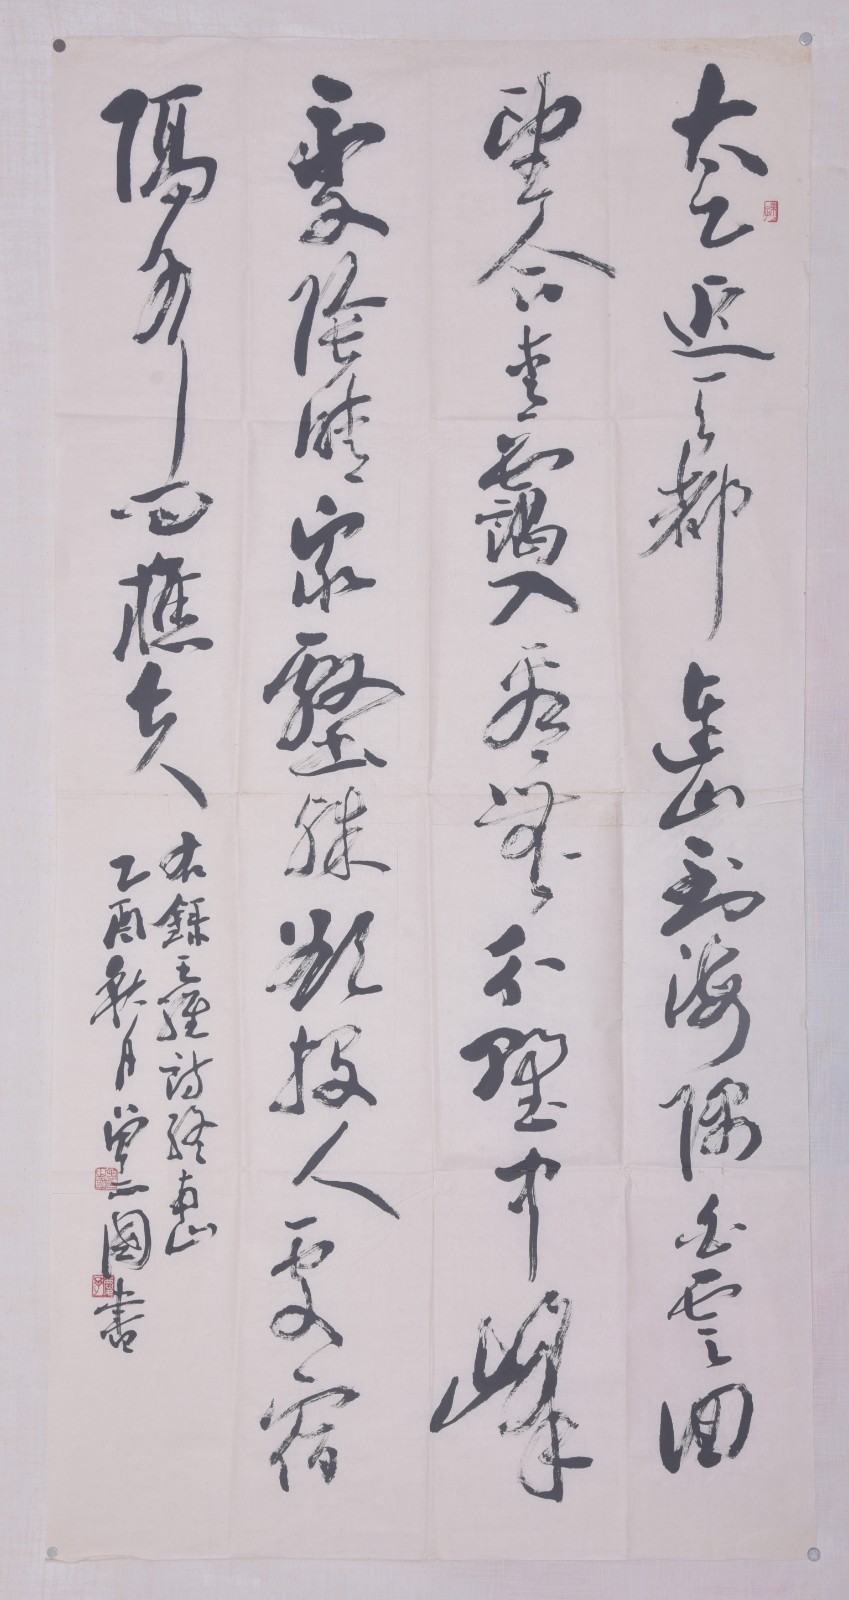 太乙近天都連山到海隅白雲回
望合青靄入看無分野中峰
變陰晴眾壑殊欲投人處宿
隔水問樵夫
右錄王維詩終南山
乙酉秋月 國書